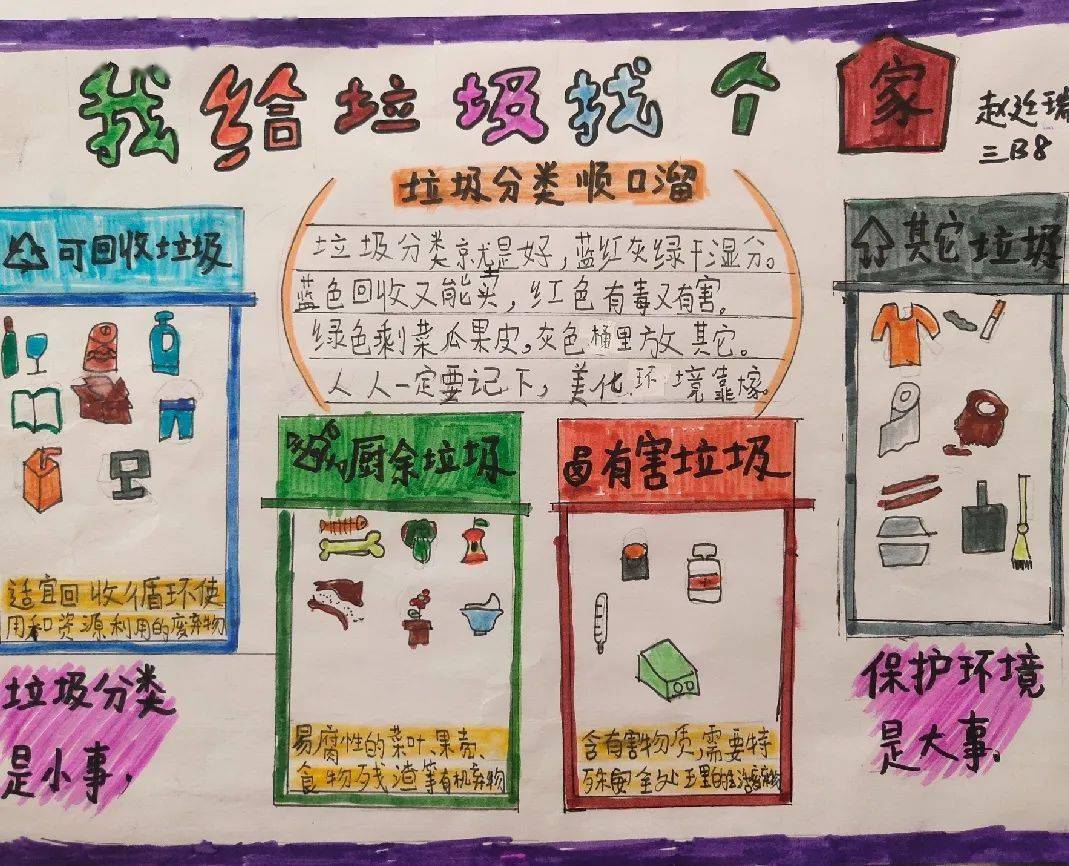 我给垃圾找个家
赵廷瑞
三B8
垃圾分类顺口溜
垃圾分类就是好,蓝红灰绿干湿分。
蓝色回收又能卖,红色有毒又有害。
绿色剩菜瓜果皮,灰色桶里放其它。
人人一定要记下,美化环境靠大家。
可回收垃圾
适宜回收循环使
用和资源利用的废弃物
厨余垃圾
易腐性的菜叶、果壳、
食物残渣等有机弃物
有害垃圾
含有害物质,需要特
殊安全处理的生活废弃物
其它垃圾
垃圾分类
是小事,
保护环境
是大事.